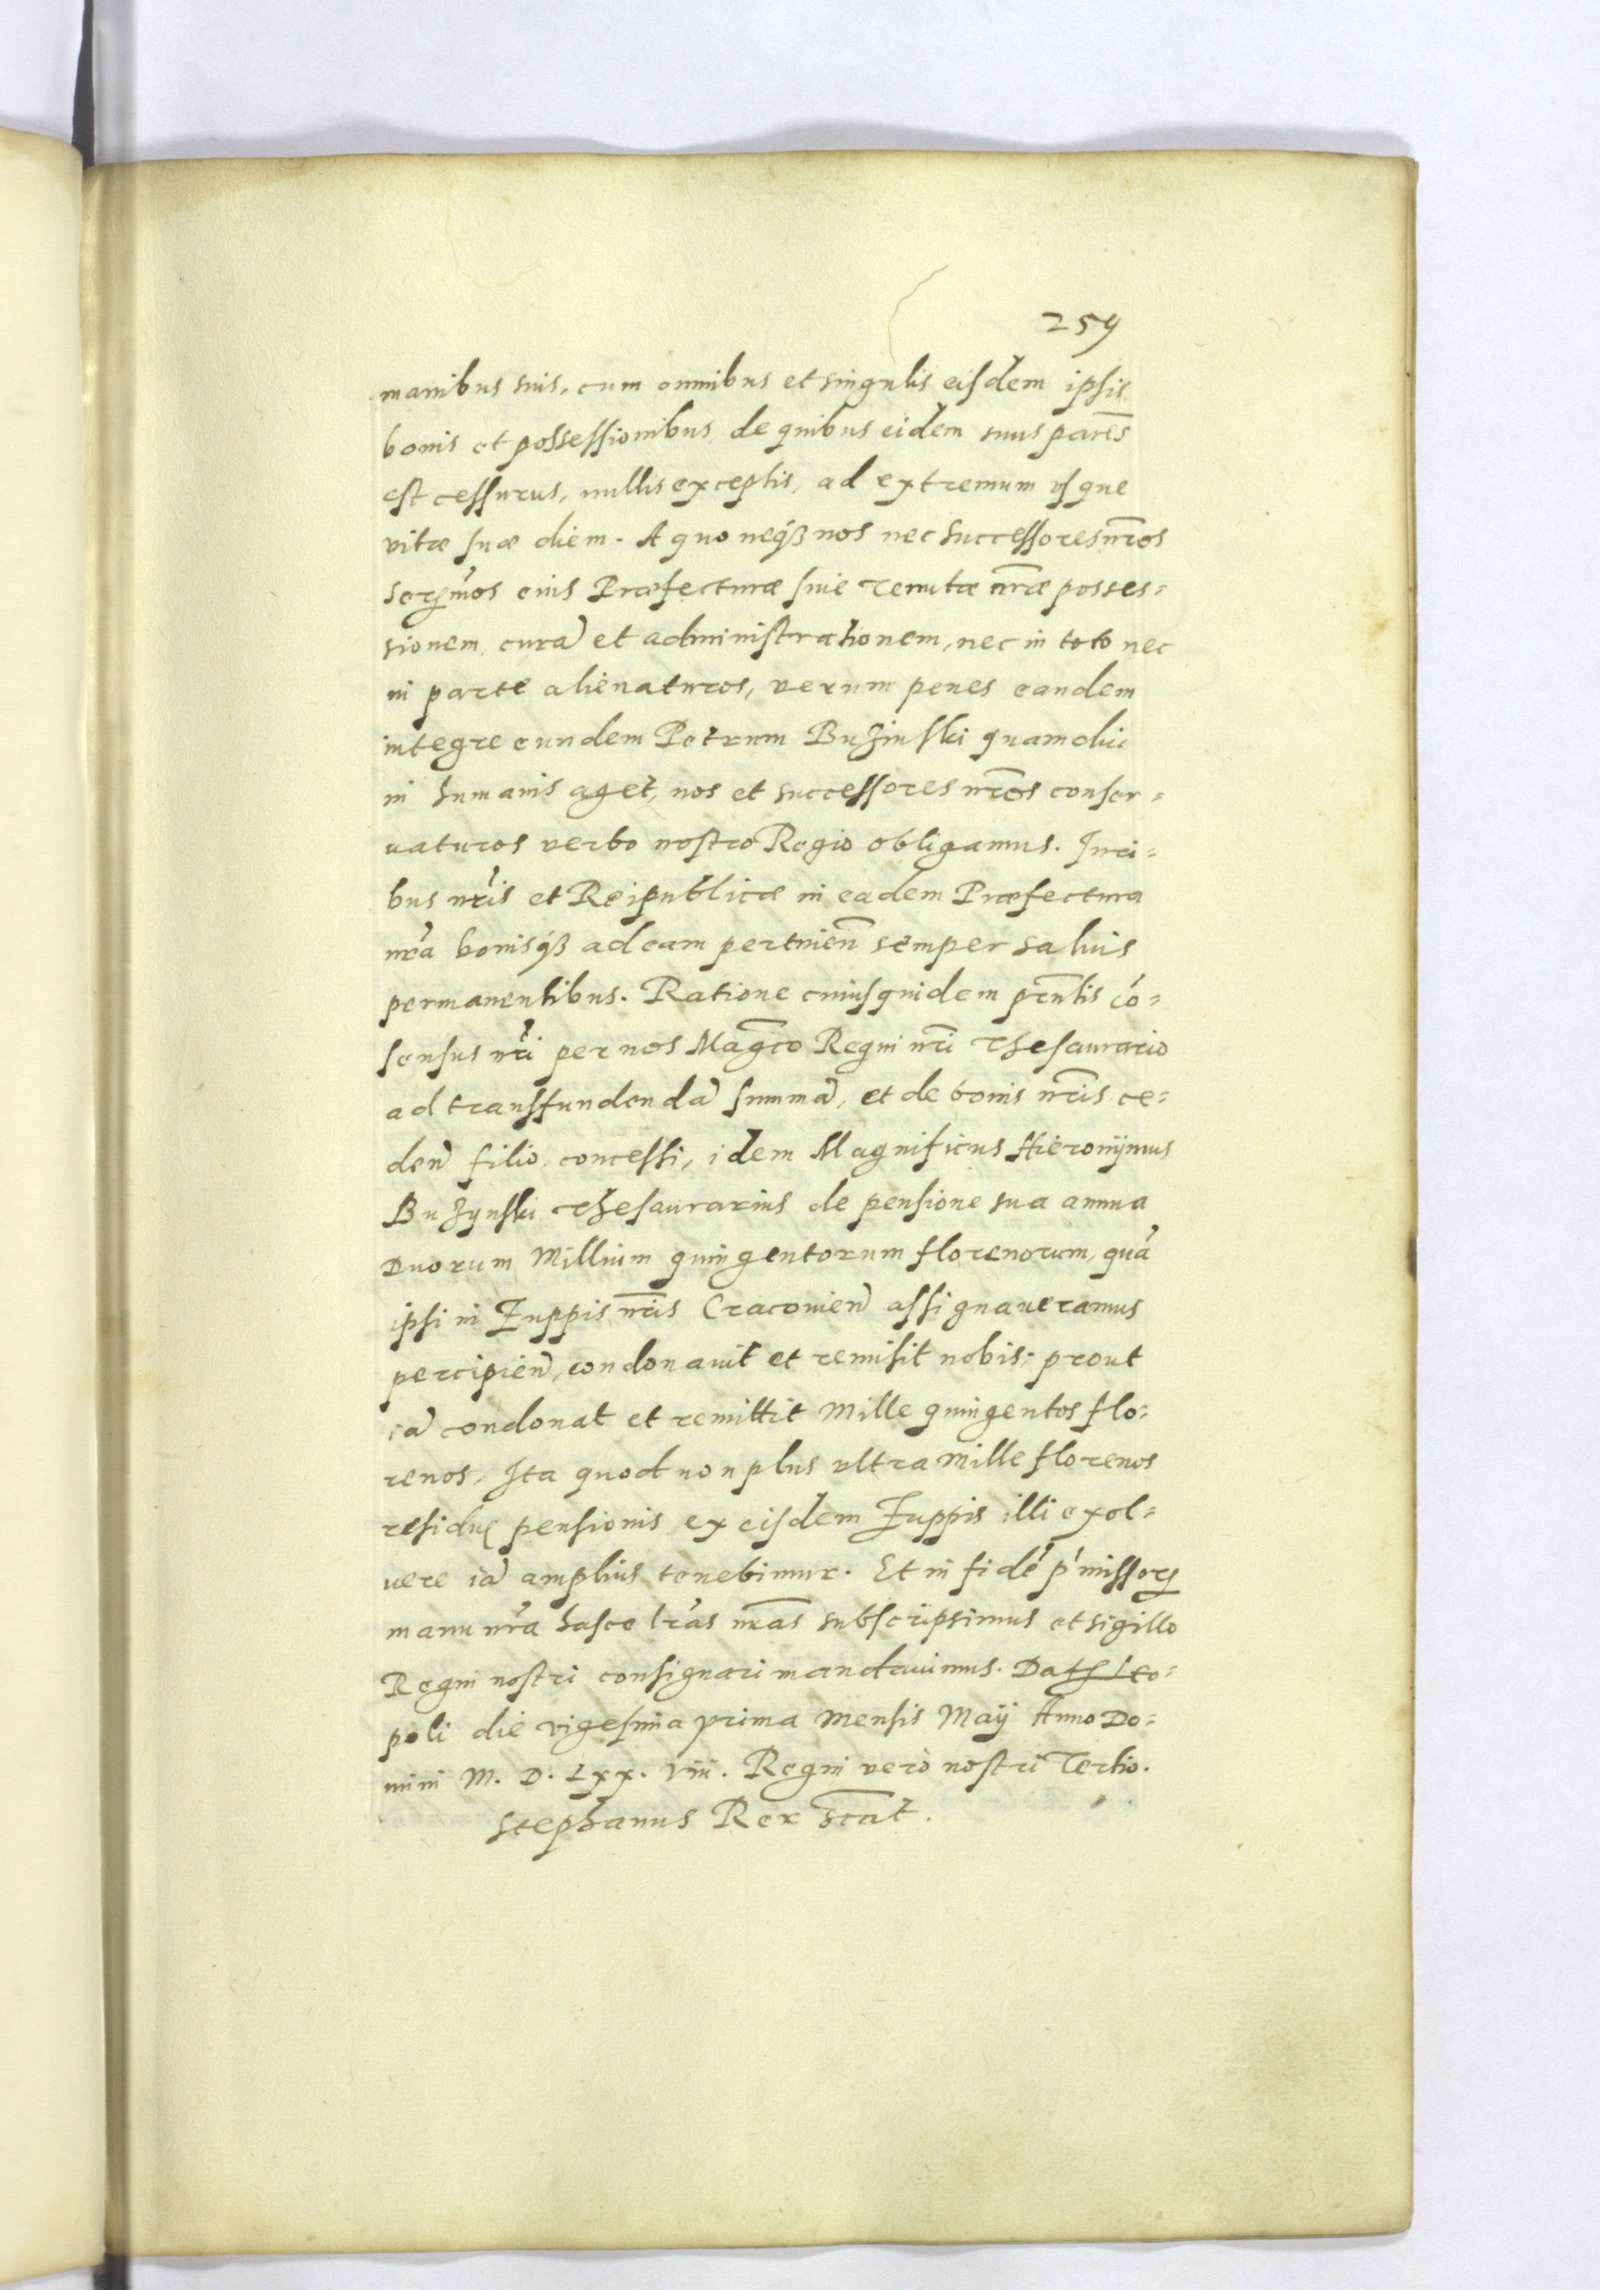 259
manibus suis, cum omnibus et singulis eisdem ipsis
bonis et possessionibus, de quibus eidem suus parēs
est cessurus, nullis exceptis, ad extremum vsque
vitæ suæ diem. A quo neqȝ nos nec successores nr̄os
Ser^mos eius Præfecturæ siue tenutæ nr̄æ posses-
sionem curā et administrationem, nec in toto nec
in parte alienaturos, verum penes eandem
integre eundem Petrum Buzinski quamdiu
in humanis aget, nos et successores nr̄os conser-
uaturos verbo nostro Regio obligamus. Iuri-
bus nr̄is et Reipublicæ in eadem Præfectura
nr̄a bonisqȝ ad eam pertinen̄ semper saluis
permanentibus. Ratione cuiusquidem pn̄tis cō-
sensus nr̄i per nos Mag^co Regni nr̄i Thesaurario
ad transfundendā summā, et de bonis nr̄is ce-
den̄ filio concessi, idem Magnificus Hieronijmus
Buzynski Thesaurarius de pensione sua annua
Duorum Millium quingentorum florenorum, quā
ipsi in Zuppis nr̄is Cracouien̄ assignaueramus
percipien̄, condonauit et remisit nobis, prout
iā condonat et remittit Mille quingentos flo-
renos. Ita quod non plus vltra Mille florenos
residuę pensionis ex eisdem Zuppis illi exol-
uere iā amplius tenebimur. Et in fidē p'missorꝝ
manu nr̄a hasce lr̄as nr̄as subscripsimus et sigillo
Regni nostri consignari mandauimus. Datꝫ Leo-
poli die vigesima prima Mensis Maij Anno Do-
mini M. D. Lxx. viii. Regni verò nostri Tertio.
Stephanus Rex